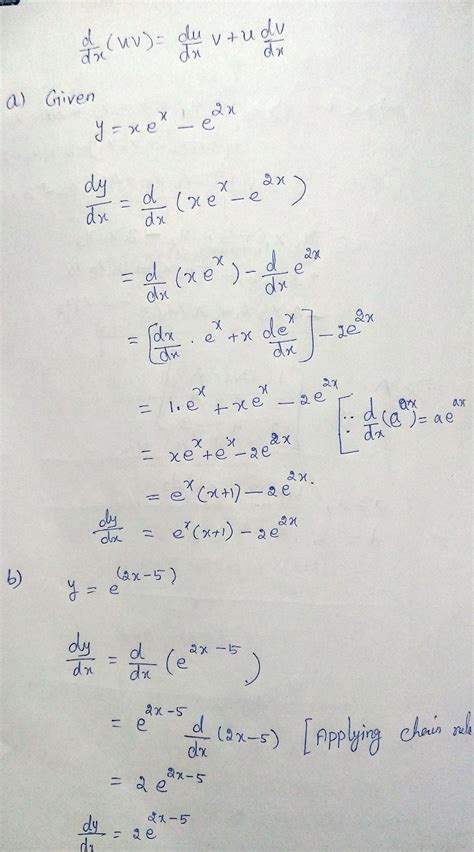 d/dx (uv) = du/dx v + u dv/dx
a) Given
y = xe^x − e^{2x}
dy/dx = d/dx (xe^x − e^{2x})
= d/dx (xe^x) − d/dx e^{2x}
= [dx/dx · e^x + x de^x/dx] − 2e^{2x}
= 1·e^x + xe^x − 2e^{2x} [∵ d/dx (e^{ax}) = ae^{ax}
= xe^x + e^x − 2e^{2x}
= e^x (x+1) − 2e^{2x}.
dy/dx = e^x (x+1) − 2e^{2x}
b) y = e^{(2x−5)}
dy/dx = d/dx (e^{2x−5})
= e^{2x−5} d/dx (2x−5) [Applying chain rule
= 2e^{2x−5}
dy/dx = 2e^{2x−5}